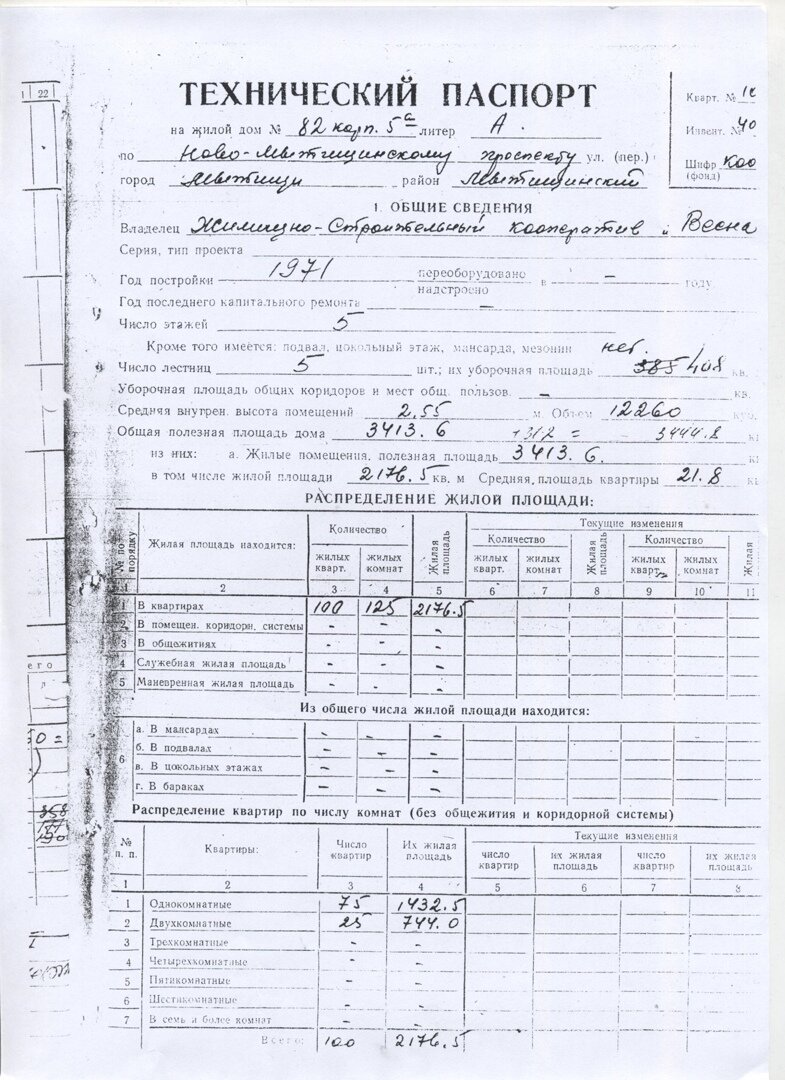 22
ТЕХНИЧЕСКИЙ ПАСПОРТ
Кварт. №
на жилой дом № 82 корп. 5а литер А.
Инвент. № 40
по Ново-Мытищинскому проспекту ул. (пер.)
Шифр Коо
(фонд)
город Мытищи район Мытищинский
I. ОБЩИЕ СВЕДЕНИЯ
Владелец Жилищно-Строительный кооператив " Весна
Серия, тип проекта
Год постройки 1971 переоборудовано
надстроено в — году
Год последнего капитального ремонта —
Число этажей 5
Кроме того имеется: подвал, цокольный этаж, мансарда, мезонин нет.
Число лестниц 5 шт.; их уборочная площадь 385 408 кв.
Уборочная площадь общих коридоров и мест общ. пользов. — кв.
Средняя внутрен. высота помещений 2.55 м. Объем 12260 куб.
Общая полезная площадь дома 3413.6 +31.2 = 3444.8
из них: а. Жилые помещения, полезная площадь 3413.6.
в том числе жилой площади 2176.5 кв. м Средняя, площадь квартиры 21.8
РАСПРЕДЕЛЕНИЕ ЖИЛОЙ ПЛОЩАДИ:
№ по порядку Жилая площадь находится: Количество Жилая площадь Текущие изменения
жилых кварт. жилых комнат Количество Жилая площадь Количество Жилая
жилых кварт. жилых комнат жилых кварт. жилых комнат
1 2 3 4 5 6 7 8 9 10 11
1 В квартирах 100 125 2176.5
2 В помещен. коридорн. системы - - -
3 В общежитиях - - -
4 Служебная жилая площадь - - -
5 Маневренная жилая площадь - - -
Из общего числа жилой площади находится:
6 а. В мансардах - - -
б. В подвалах - - -
в. В цокольных этажах - - -
г. В бараках - - -
Распределение квартир по числу комнат (без общежития и коридорной системы)
№ п. п. Квартиры: Число квартир Их жилая площадь Текущие изменения
число квартир их жилая площадь число квартир их жилая площадь
1 2 3 4 5 6 7 8
1 Однокомнатные 75 1432.5
2 Двухкомнатные 25 744.0
3 Трехкомнатные - -
4 Четырехкомнатные - -
5 Пятикомнатные - -
6 Шестикомнатные - -
7 В семь и более комнат - -
Всего: 100 2176.5